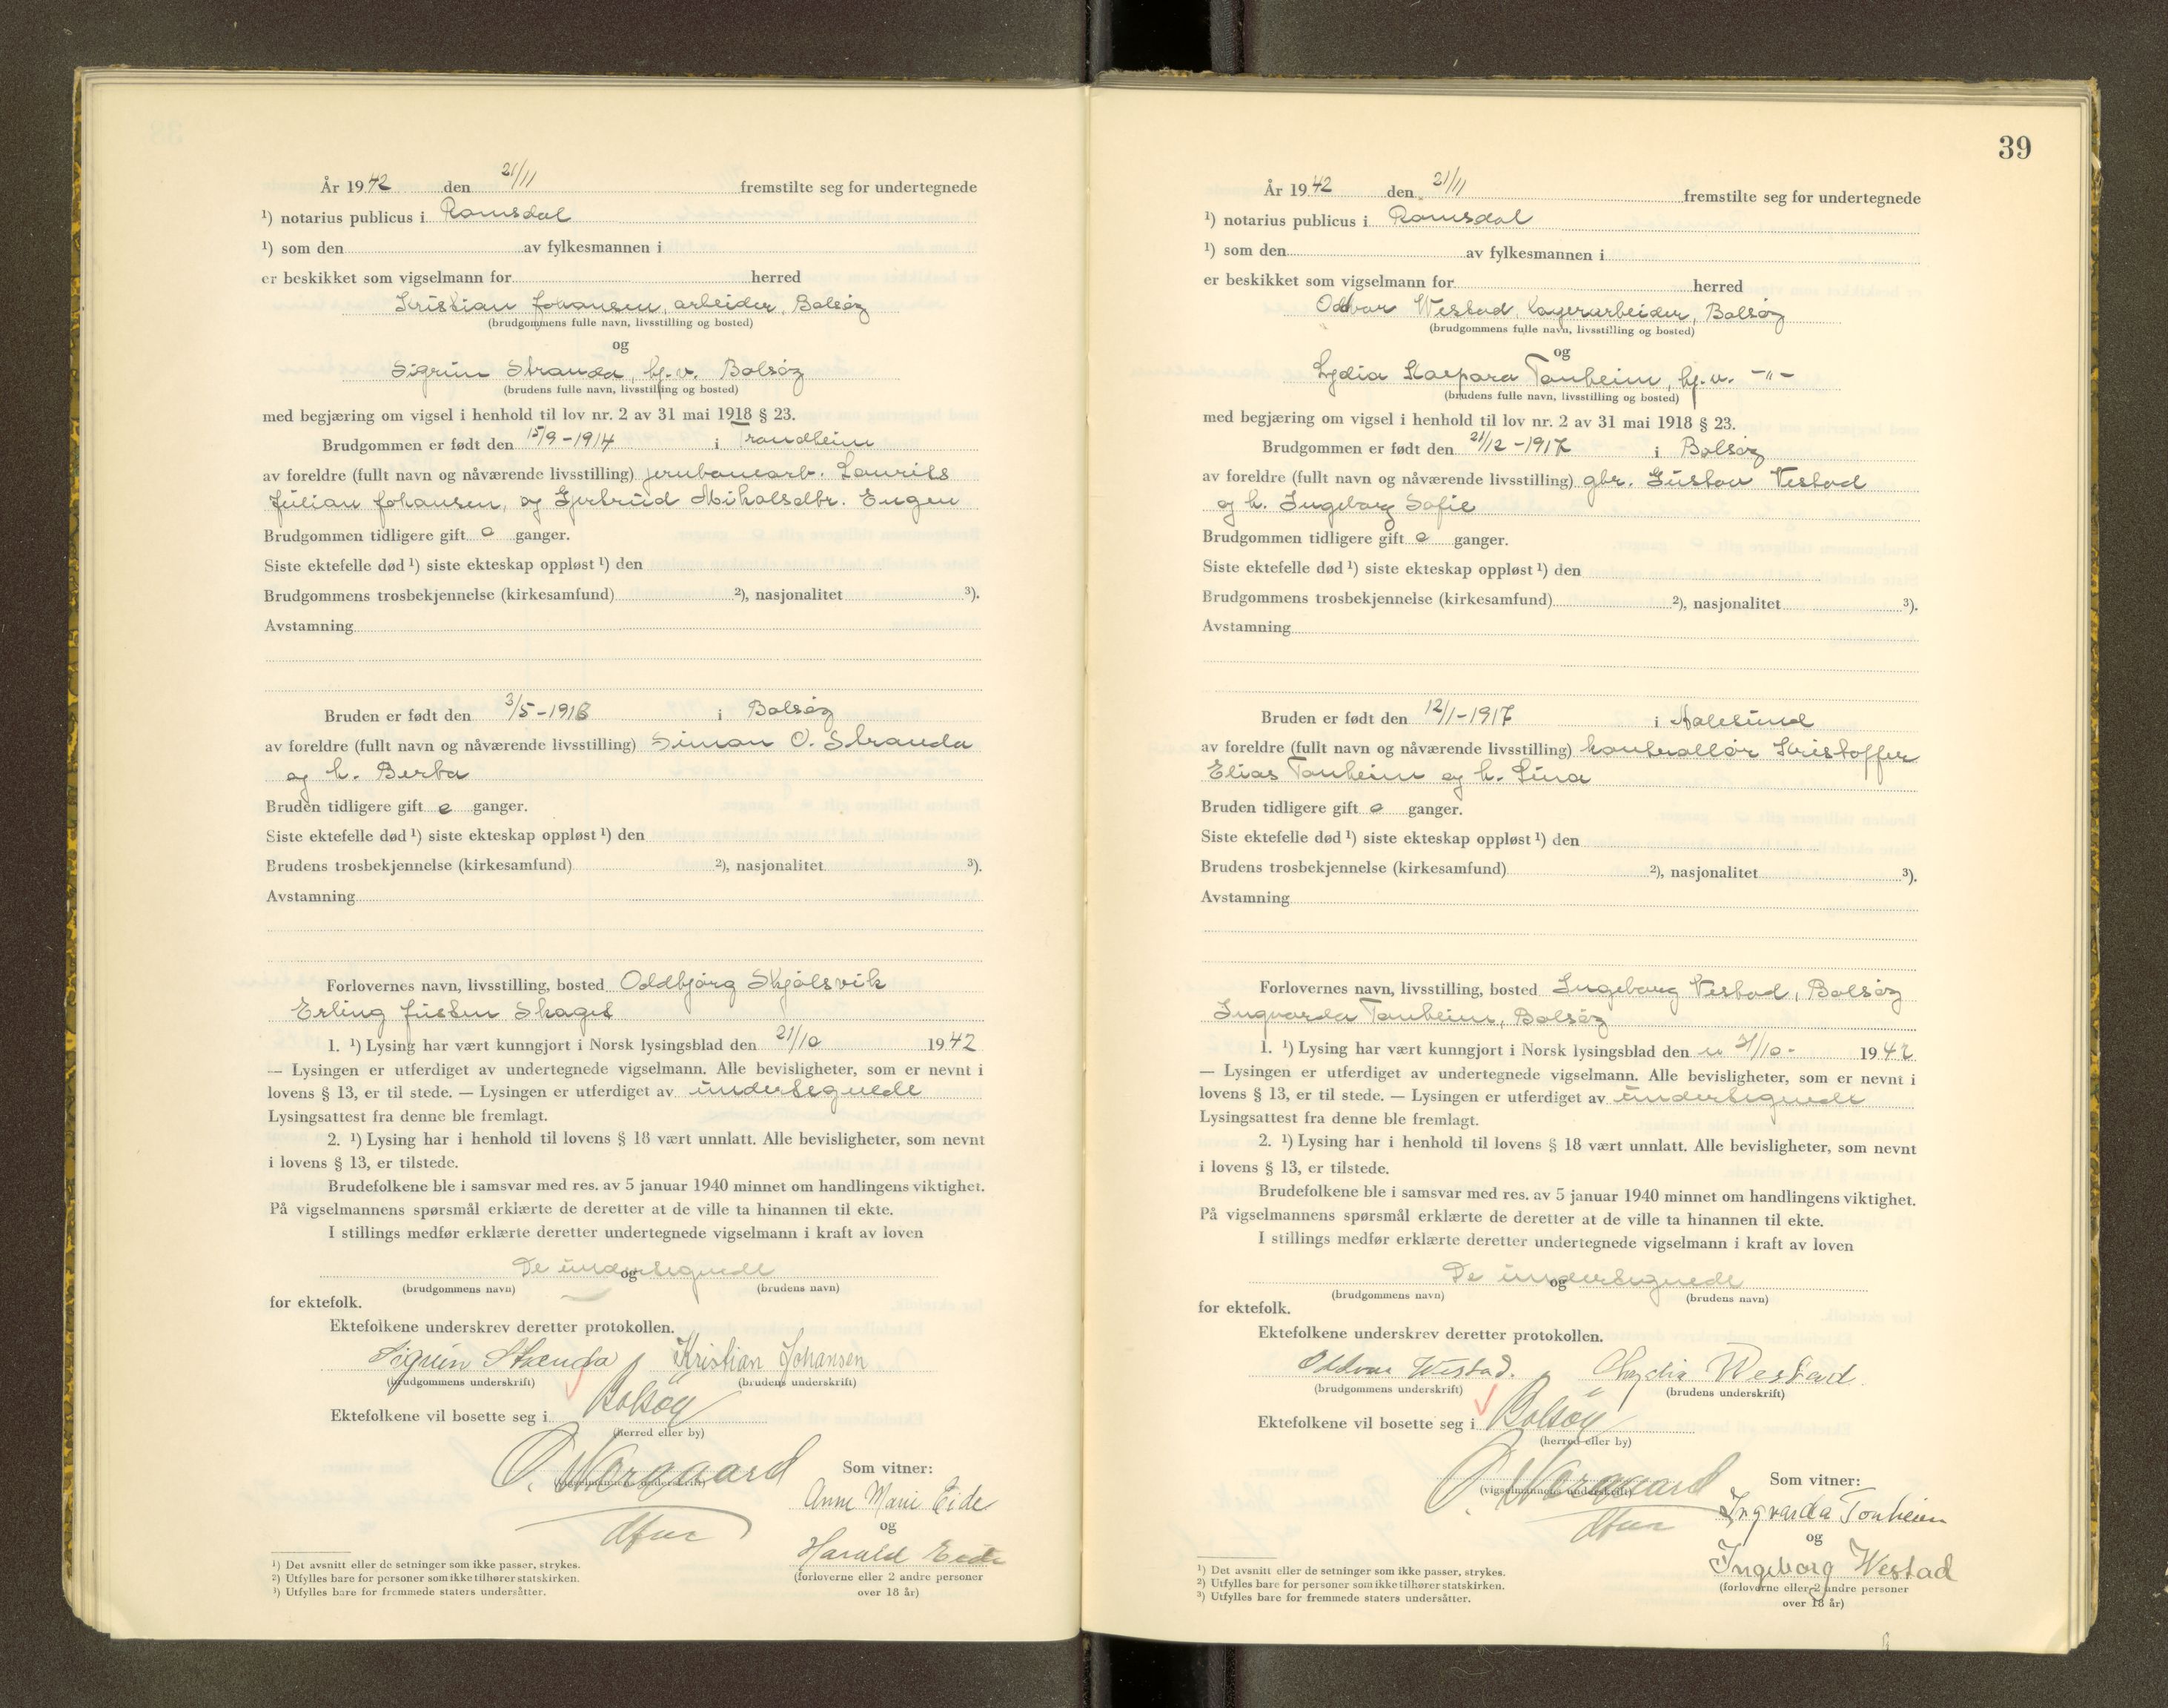 År 1942 den 21/11 fremstilte seg for undertegnede
¹) notarius publicus i Romsdal
¹) som den av fylkesmannen i
er beskikket som vigselmann for herred
Kristian Johansen, arbeider, Bolsøy
(brudgommens fulle navn, livsstilling og bosted)
og
Sigrun Stranda, hj.v. Bolsøy
(brudens fulle navn, livsstilling og bosted)
med begjæring om vigsel i henhold til lov nr. 2 av 31 mai 1918 § 23.
Brudgommen er født den 15/9-1914 i Trondheim
av foreldre (fullt navn og nåværende livsstilling) jernbanearb. Laurits
Julian Johansen, og Gjertrud Mikalsdtr. Engen
Brudgommen tidligere gift 0 ganger.
Siste ektefelle død ¹) siste ekteskap oppløst ¹) den
Brudgommens trosbekjennelse (kirkesamfund) ²), nasjonalitet ³).
Avstamning
Bruden er født den 3/5-1918 i Bolsøy
av foreldre (fullt navn og nåværende livsstilling) Simon O. Stranda
og h. Berta
Bruden tidligere gift 0 ganger.
Siste ektefelle død ¹) siste ekteskap oppløst ¹) den
Brudens trosbekjennelse (kirkesamfund) ²), nasjonalitet ³).
Avstamning
Forlovernes navn, livsstilling, bosted Oddbjørg Skjølsvik
Erling Justen Skaget
1. ¹) Lysing har vært kunngjort i Norsk lysingsblad den 21/10 1942
— Lysingen er utferdiget av undertegnede vigselmann. Alle bevisligheter, som er nevnt i
lovens § 13, er til stede. — Lysingen er utferdiget av undertegnede
Lysingsattest fra denne ble fremlagt.
2. ¹) Lysing har i henhold til lovens § 18 vært unnlatt. Alle bevisligheter, som nevnt
i lovens § 13, er tilstede.
Brudefolkene ble i samsvar med res. av 5 januar 1940 minnet om handlingens viktighet.
På vigselmannens spørsmål erklærte de deretter at de ville ta hinannen til ekte.
I stillings medfør erklærte deretter undertegnede vigselmann i kraft av loven
De undertegnede
og
(brudgommens navn) (brudens navn)
for ektefolk.
Ektefolkene underskrev deretter protokollen.
Sigrun Stranda Kristian Johansen
(brudgommens underskrift) (brudens underskrift)
Ektefolkene vil bosette seg i Bolsøy
(herred eller by)
O. Norgaard
(vigselmannens underskrift)
Som vitner:
Anne Marie Eide
og
Harald Eide
(forloverne eller 2 andre personer
over 18 år)
¹) Det avsnitt eller de setninger som ikke passer, strykes.
²) Utfylles bare for personer som ikke tilhører statskirken.
³) Utfylles bare for fremmede staters undersåtter.
39
År 1942 den 21/11 fremstilte seg for undertegnede
¹) notarius publicus i Romsdal
¹) som den av fylkesmannen i
er beskikket som vigselmann for herred
Oddvar Westad, lagerarbeider, Bolsøy
(brudgommens fulle navn, livsstilling og bosted)
og
Lydia Kaspara Tonheim, hj.v. -"-
(brudens fulle navn, livsstilling og bosted)
med begjæring om vigsel i henhold til lov nr. 2 av 31 mai 1918 § 23.
Brudgommen er født den 21/12-1917 i Bolsøy
av foreldre (fullt navn og nåværende livsstilling) gbr. Gustav Vestad
og h. Ingeborg Sofie
Brudgommen tidligere gift 0 ganger.
Siste ektefelle død ¹) siste ekteskap oppløst ¹) den
Brudgommens trosbekjennelse (kirkesamfund) ²), nasjonalitet ³).
Avstamning
Bruden er født den 12/1-1917 i Aalesund
av foreldre (fullt navn og nåværende livsstilling) kontrollør Kristoffer
Elias Tonheim og h. Lina
Bruden tidligere gift 0 ganger.
Siste ektefelle død ¹) siste ekteskap oppløst ¹) den
Brudens trosbekjennelse (kirkesamfund) ²), nasjonalitet ³).
Avstamning
Forlovernes navn, livsstilling, bosted Ingeborg Vestad, Bolsøy
Ingvarda Tonheim, Bolsøy
1. ¹) Lysing har vært kunngjort i Norsk lysingsblad den 21/10- 1942
— Lysingen er utferdiget av undertegnede vigselmann. Alle bevisligheter, som er nevnt i
lovens § 13, er til stede. — Lysingen er utferdiget av undertegnede
Lysingsattest fra denne ble fremlagt.
2. ¹) Lysing har i henhold til lovens § 18 vært unnlatt. Alle bevisligheter, som nevnt
i lovens § 13, er tilstede.
Brudefolkene ble i samsvar med res. av 5 januar 1940 minnet om handlingens viktighet.
På vigselmannens spørsmål erklærte de deretter at de ville ta hinannen til ekte.
I stillings medfør erklærte deretter undertegnede vigselmann i kraft av loven
De undertegnede
og
(brudgommens navn) (brudens navn)
for ektefolk.
Ektefolkene underskrev deretter protokollen.
Oddvar Westad. Lydia Westad.
(brudgommens underskrift) (brudens underskrift)
Ektefolkene vil bosette seg i Bolsøy
(herred eller by)
O. Norgaard
(vigselmannens underskrift)
Som vitner:
Ingvarda Tonheim
og
Ingeborg Westad
(forloverne eller 2 andre personer
over 18 år)
¹) Det avsnitt eller de setninger som ikke passer, strykes.
²) Utfylles bare for personer som ikke tilhører statskirken.
³) Utfylles bare for fremmede staters undersåtter.